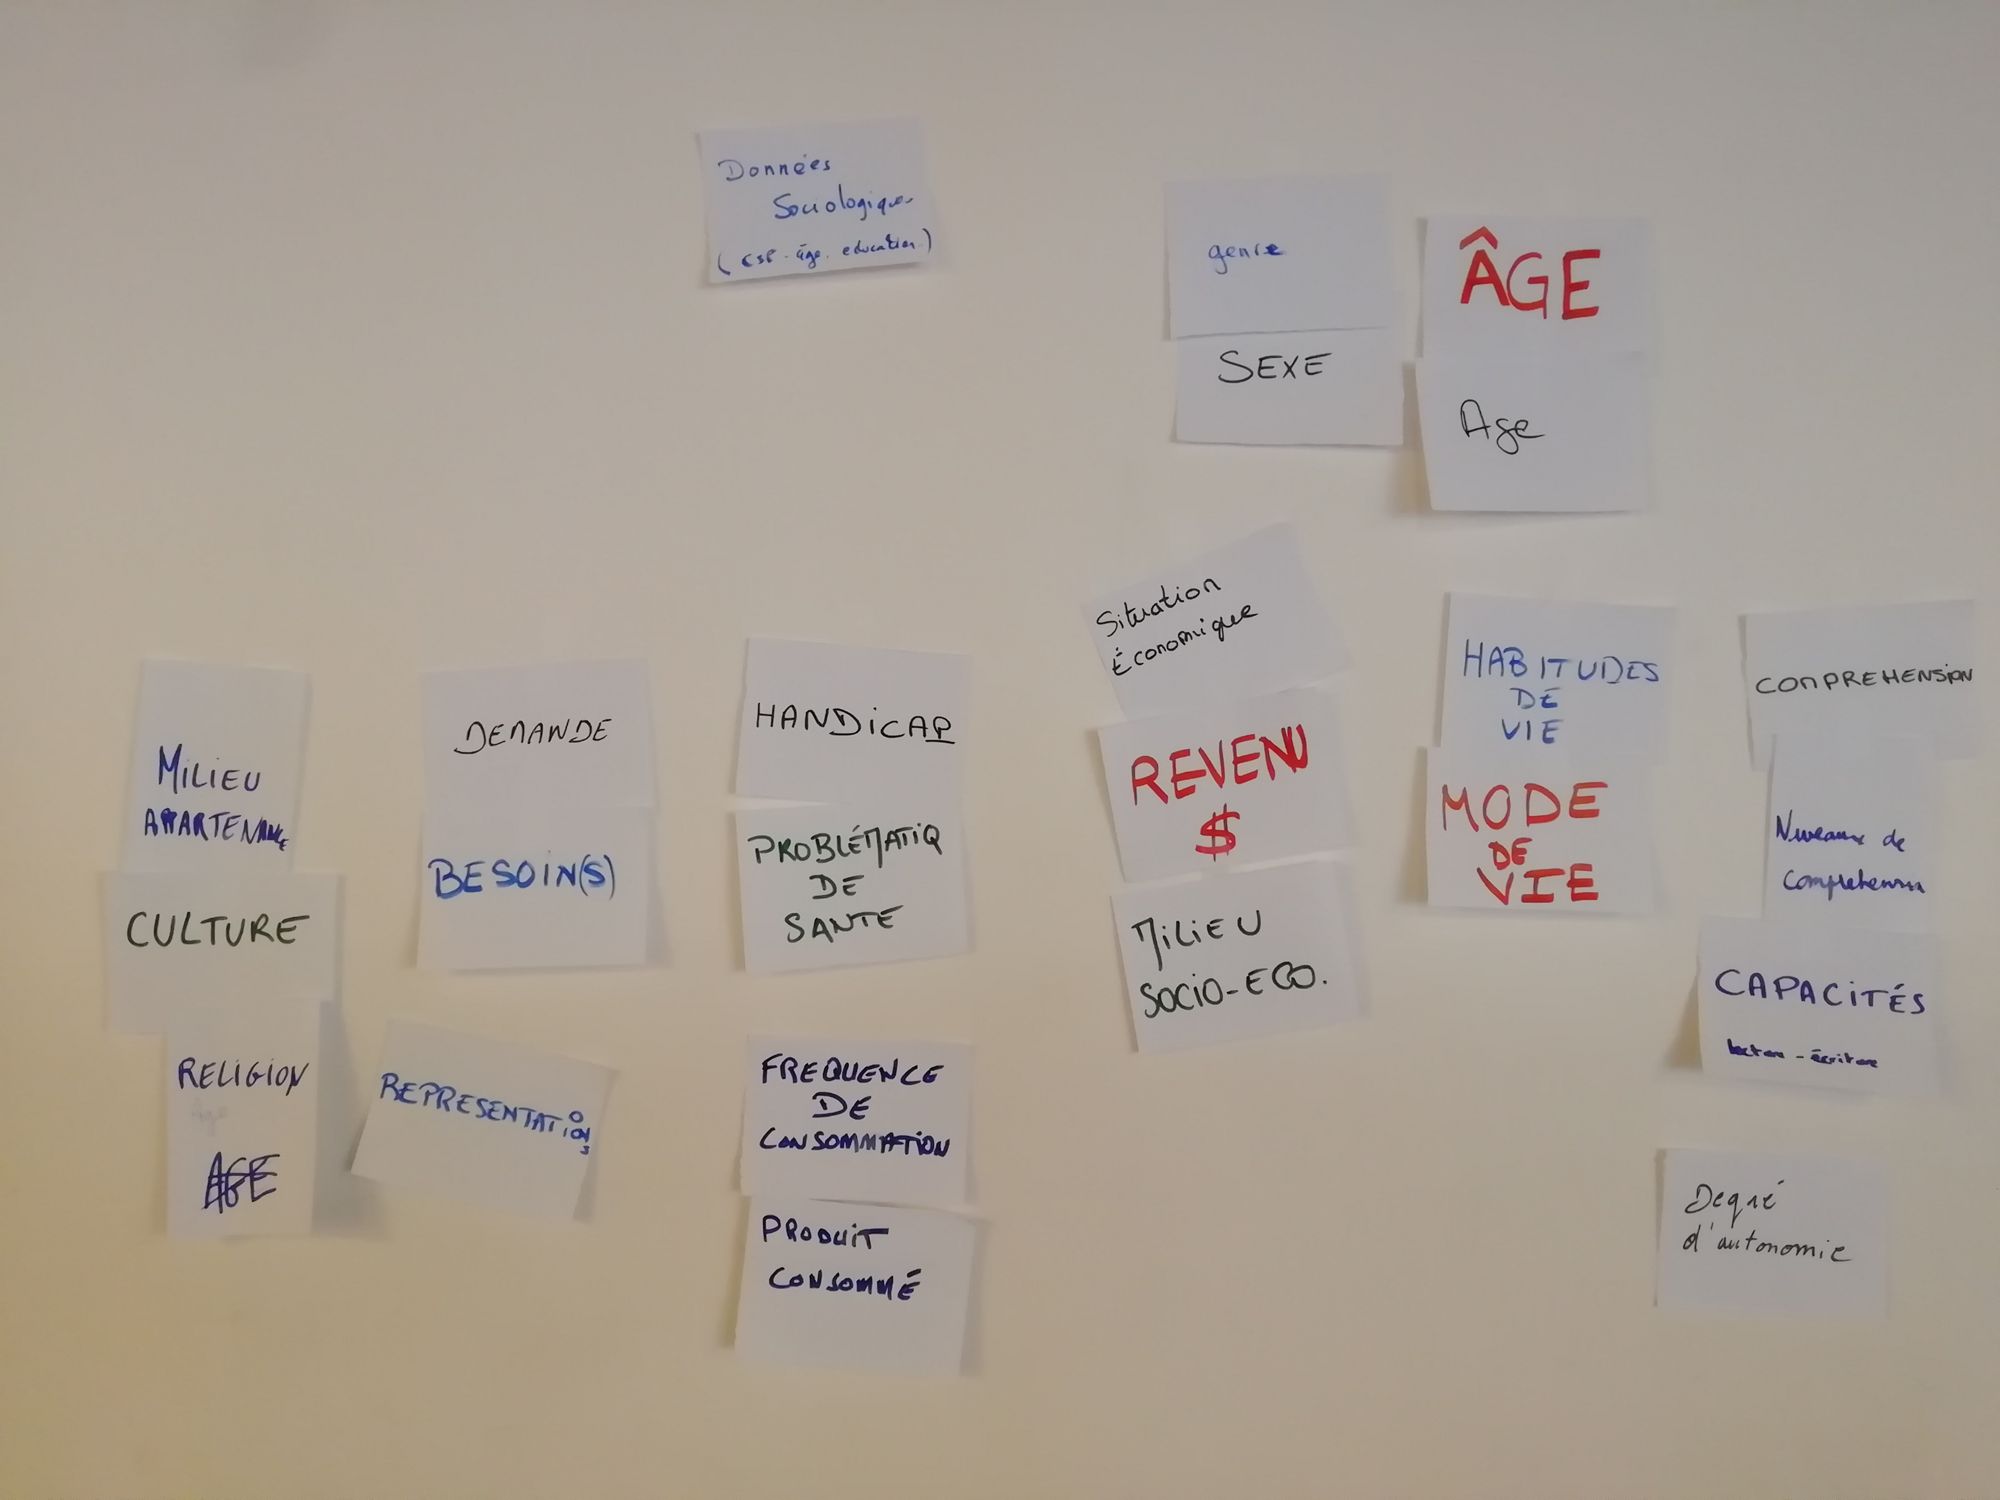 Données
Sociologiques
(CSP - âge. education.)
genre
SEXE
ÂGE
Age
MILIEU
APPARTENANCE
CULTURE
RELIGION
Age
AGE
DEMANDE
BESOIN(S)
REPRESENTATIONS
HANDICAP
PROBLÉMATIQ
DE
SANTE
FREQUENCE
DE
CONSOMMATION
PRODUIT
CONSOMMÉ
Situation
Économique
REVENU
$
MILIEU
SOCIO-ECO.
HABITUDES
DE
VIE
MODE
DE
VIE
COMPREHENSION
Niveaux de
Comprehension
CAPACITÉS
lecture - écriture
Degré
d'autonomie